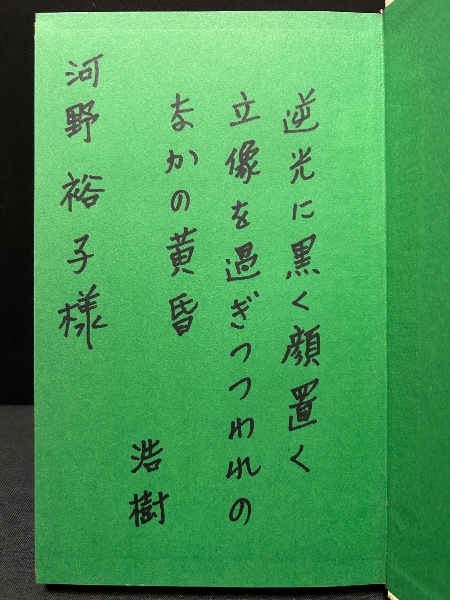 逆光に黒く顔置く
立像を過ぎつつわれの
なかの黄昏
浩樹
河野裕子様